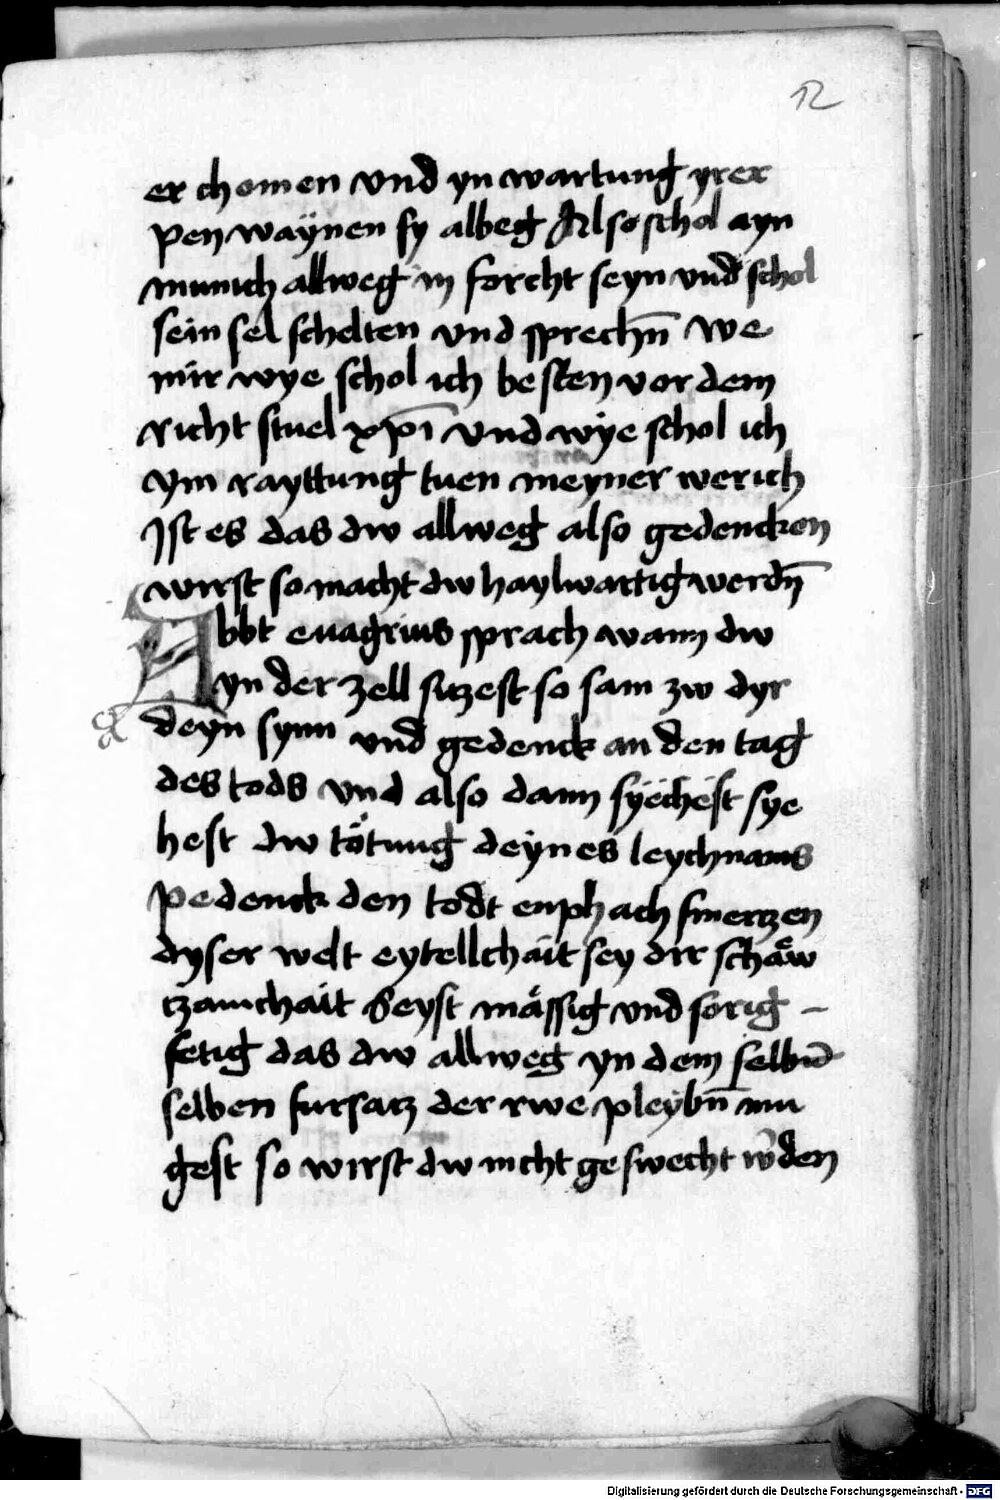 12
er chomen vnd yn wartung yrer
pen waÿnen sy albeg Also schol ayn
munich allweg in forcht seyn vnd schol
sein sel schelten vnd sprechn̄ We
mir wye schol ich besten vor dem
richt stuel xp̄i vnd wÿe schol ich
ym rayttung tuen meyner werich
Ist es das dw allweg also gedencken
wirst so macht dw haylwartig werdn̄
Abbt euagrius sprach wann dw
yn der zell sitzest so sam zw dyr
deyn synn vnd gedenck an den tag
des tods vnd also dann sÿechest sye
hest dw tötung deÿnes leychnams
pedenck den todt enphach smerczen
dyser welt eytellchait sey dir schäw
tzamchait Seyst mässig vnd sorig –
fetig das dw allweg yn dem selbn̄
selben fursatz der rwe pleÿbn̄ mu
gest so wirst dw nicht geswecht w̄den
Digitalisierung gefördert durch die Deutsche Forschungsgemeinschaft - DFG